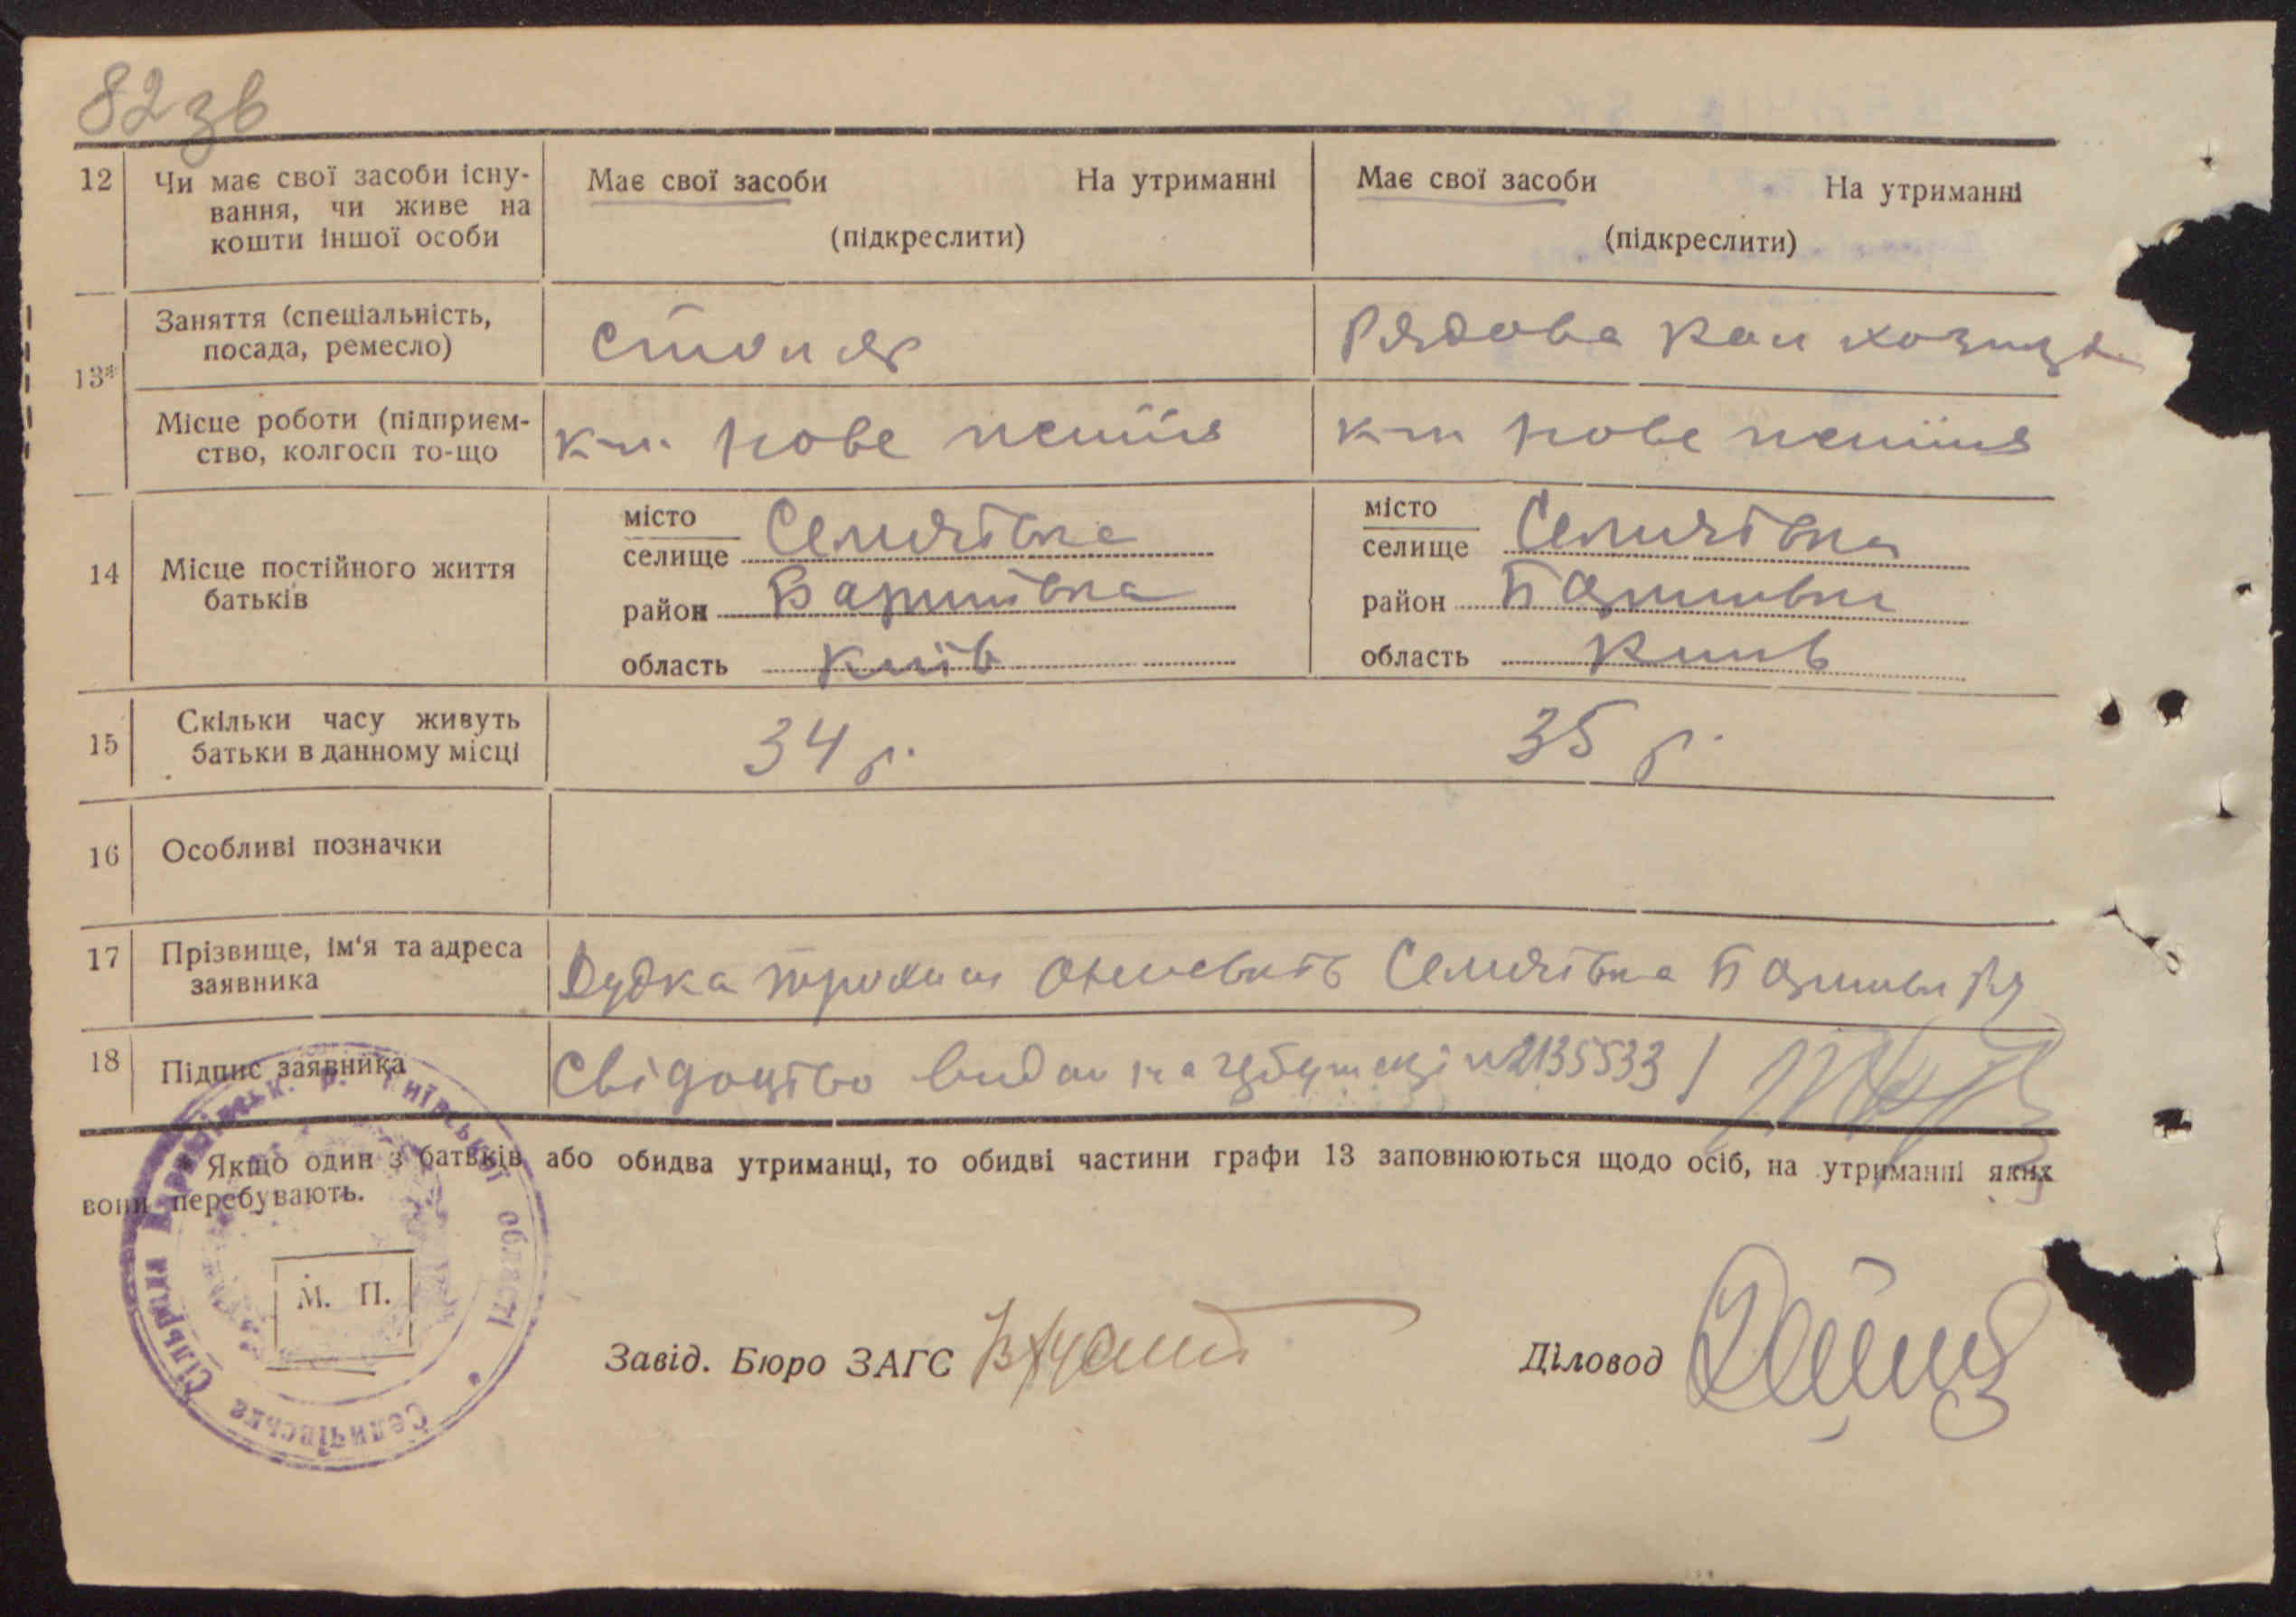 82 зв
12 Чи має свої засоби існу-
вання, чи живе на
кошти іншої особи
Має свої засоби На утриманні
(підкреслити)
Має свої засоби На утриманні
(підкреслити)
13*
Заняття (спеціальність,
посада, ремесло)
столяр
Рядова колхозниця
Місце роботи (підприєм-
ство, колгосп то-що
к-п нове
к-п нове
14 Місце постійного життя
батьків
місто
селище Селичівка
район Баришівка
область Київ
місто
селище Селичівка
район
область Киів
15 Скільки часу живуть
батьки в данному місці
34 р.
35 р.
16 Особливі позначки
17 Прізвище, ім'я та адреса
заявника
Дудка Трохим Селичівка
18 Підпис заявника
Свідоцтво видано на №2135533
* Якщо один з батьків або обидва утриманці, то обидві частини графи 13 заповнюються щодо осіб, на утриманні яких
вони перебувають.
М. П.
Селичівська Сільрада Баришівськ. р. Київської області
Завід. Бюро ЗАГС
Діловод